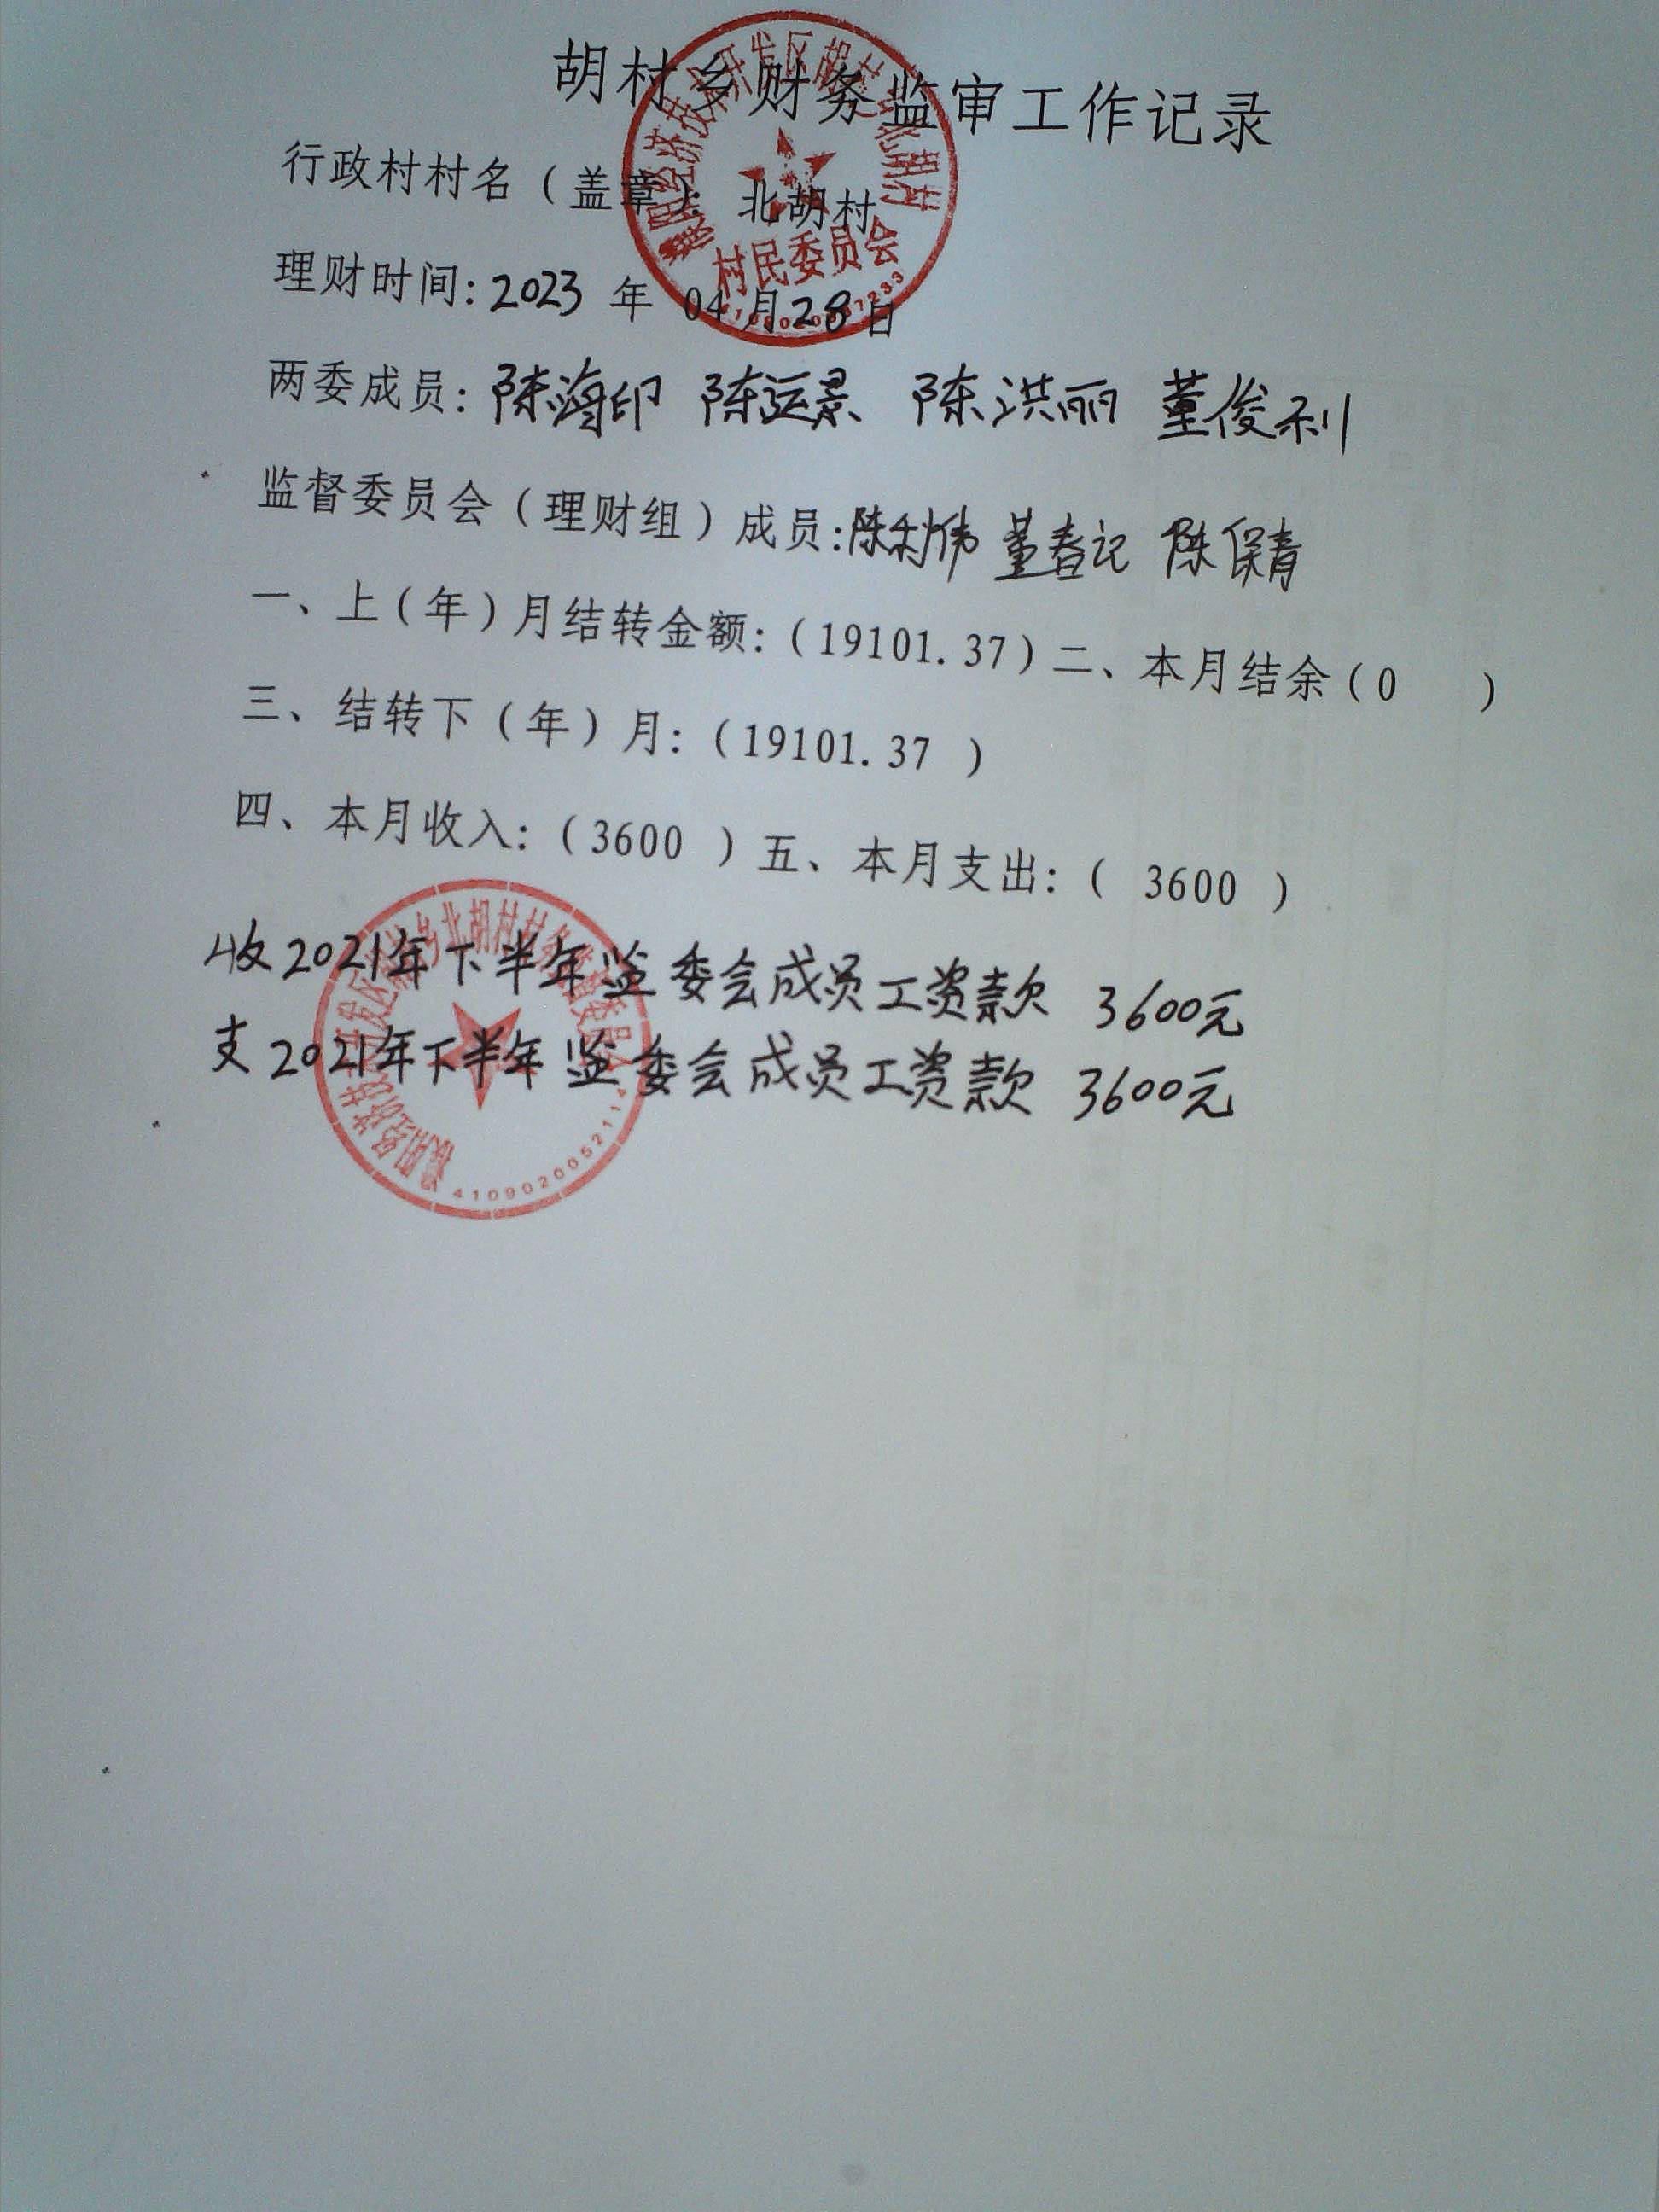 胡村乡财务监审工作记录
行政村村名（盖章）：北胡村
理财时间：2023 年 04 月28日
两委成员：陈海印 陈运景 陈洪丽 董俊利
监督委员会（理财组）成员：陈利伟 董春记 陈保青
一、上（年）月结转金额：（19101.37）二、本月结余（0 ）
三、结转下（年）月：（19101.37 ）
四、本月收入：（3600 ）五、本月支出：（ 3600 ）
收2021年下半年监委会成员工资款 3600元
支2021年下半年监委会成员工资款 3600元
濮阳经济技术开发区胡村乡北胡村
村民委员会
4109020052114